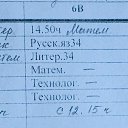 6В
14.50ч Матем
Русск.яз34
Литер.34
Матем.
Технолог. —
Технолог. —
с 12.15 ч